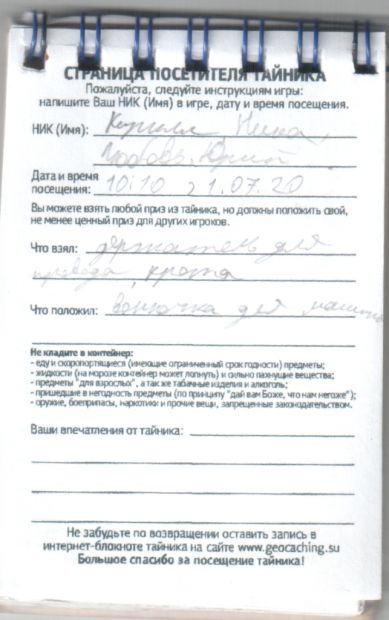 СТРАНИЦА ПОСЕТИТЕЛЯ ТАЙНИКА
Пожалуйста, следуйте инструкциям игры:
напишите Ваш НИК (Имя) в игре, дату и время посещения.
НИК (Имя): Кирилл, Нина,
Любовь, Юрий
Дата и время
посещения: 10:10 21.07.20
Вы можете взять любой приз из тайника, но должны положить свой,
не менее ценный приз для других игроков.
Что взял: держатель для
провода, крота
Что положил: вонючка для машины
Не кладите в контейнер:
- еду и скоропортящиеся (имеющие ограниченный срок годности) предметы;
- жидкости (на морозе контейнер может лопнуть) и сильно пахнущие вещества;
- предметы "для взрослых", а так же табачные изделия и алкоголь;
- пришедшие в негодность предметы (по принципу "дай вам Боже, что нам негоже");
- оружие, боеприпасы, наркотики и прочие вещи, запрещенные законодательством.
Ваши впечатления от тайника:
Не забудьте по возвращении оставить запись в
интернет-блокноте тайника на сайте www.geocaching.su
Большое спасибо за посещение тайника!